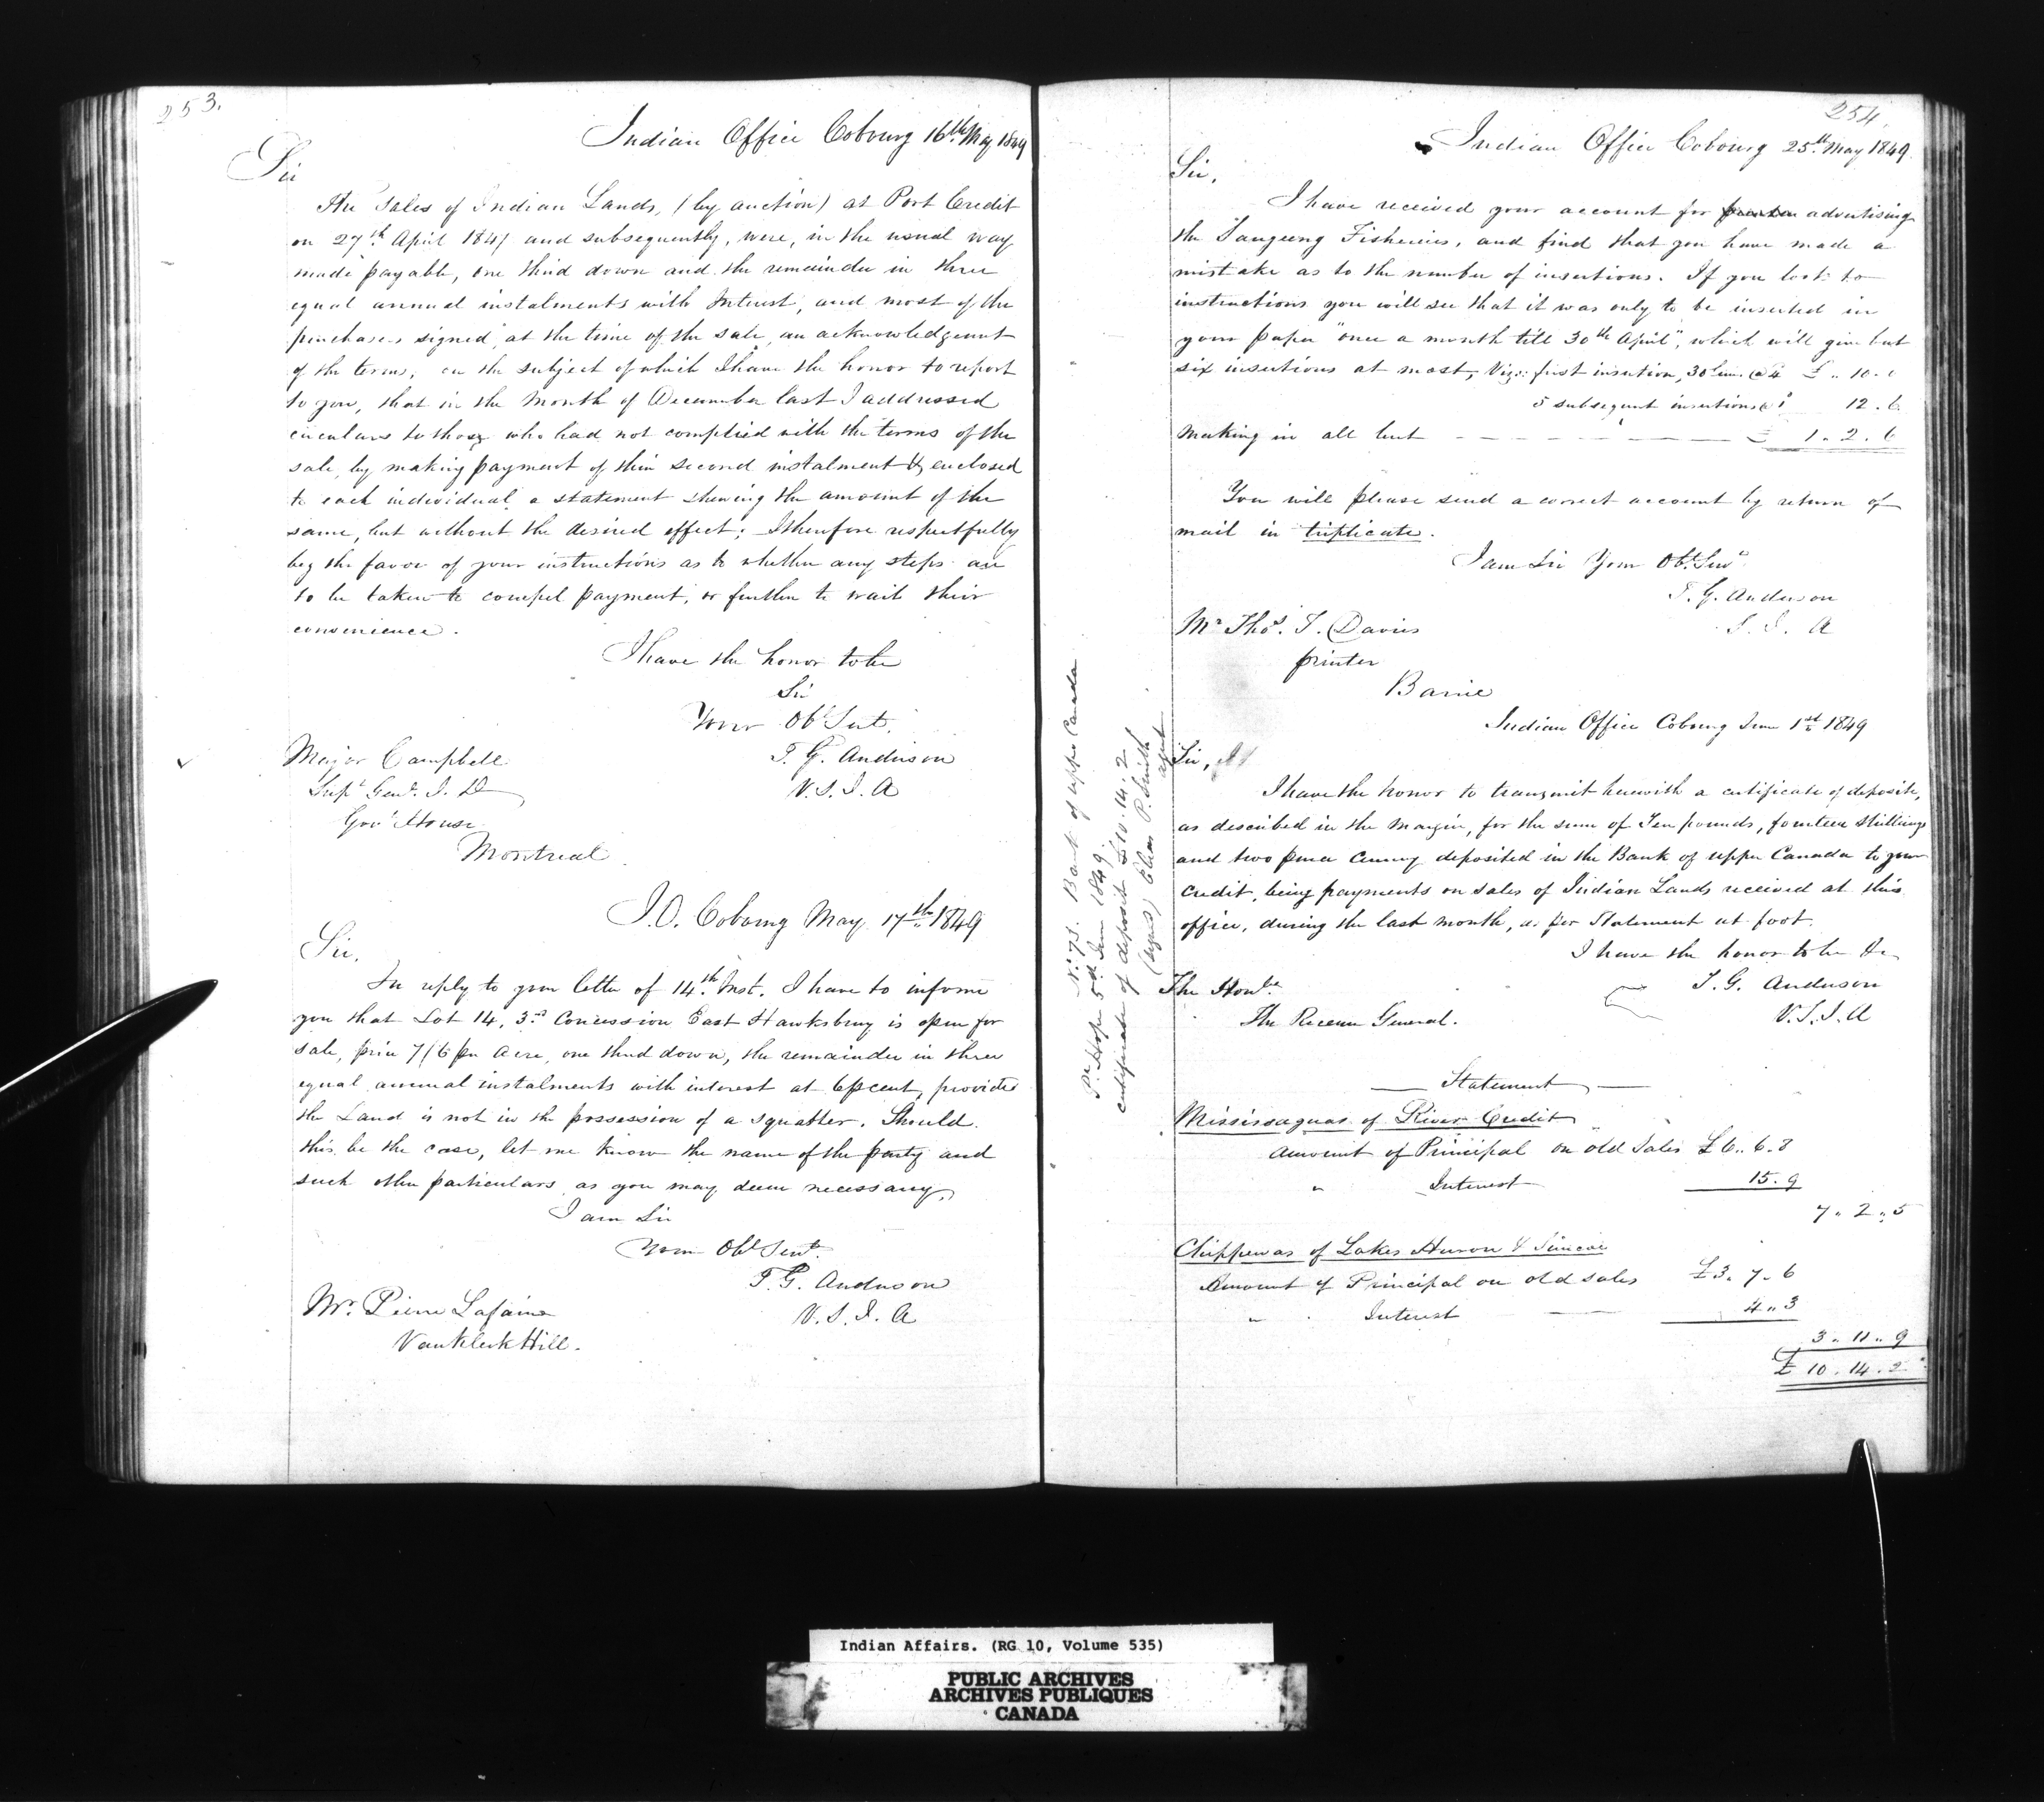 253.
Indian Office Cobourg 16th May 1849
Sir
The Sales of Indian Lands, (by auction) at Port Credit
on 27th April 1847 and subsequently, were, in the usual way
made payable, one third down and the remainder in three
equal annual instalments with Interest, and most of the
purchasers signed, at the time of the sale, an acknowledgement
of the terms, on the subject of which I have the honor to report
to you, that in the Month of December last I addressed
circulars to those who had not complied with the terms of the
sale, by making payment of their second instalment & enclosed
to each individual a statement shewing the amount of the
same, but without the desired effect; I therefore respectfully
beg the favor of your instructions as to whether any steps are
to be taken to compel payment, or further to wait their
convenience.
I have the honor to be
Sir
Your Obt Sert.
T. G. Anderson
V. S. I. A
Major Campbell
Supt Genl. I. D
Govt House
Montreal
I.O. Cobourg May 17th 1849
Sir,
In reply to your letter of 14th Inst. I have to inform
you that Lot 14, 3rd Concession East Hawksbury is open for
sale, price 7/6 per Acre, one third down, the remainder in three
equal annual instalments with interest at 6 pcent, provided
the Land is not in the possession of a squatter. Should
this be the case, let me know the name of the party and
such other particulars as you may deem necessary,
I am Sir
Your Obt Sert.
T. G. Anderson
V. S. I. A
Mr. Pierre
VanKleek Hill.
254.
Indian Office Cobourg 25th May 1849.
Sir,
I have received your account for advertising
the Saugeeng Fisheries, and find that you have made a
mistake as to the number of insertions. If you look to
instructions you will see that it was only to be inserted in
your paper "once a month till 30th April", which will give but
six insertions at most, Viz: first insertion, 30 lines @ 4 £ .. 10. 0
5 subsequent insertions @ 12. 6
Making in all but £ 1. 2. 6
You will please send a correct account by return of
mail in triplicate.
I am Sir Your Obt. Servt
T. G. Anderson
S. I. A
Mr Thos. T. Davies
printer
Barrie
Indian Office Cobourg June 1st 1849
Sir,
I have the honor to transmit herewith a certificate of deposite,
as described in the margin, for the sum of Ten pounds, fourteen Shillings
and two pence Curncy deposited in the Bank of upper Canada to your
Credit, being payments on sales of Indian Lands received at this
office, during the last month, as per Statement at foot.
I have the honor to be &c
T. G. Anderson
V. S. I. A
The Honble
The Receiver General.
No 73. Bank of upper Canada
Pt Hope 5th June 1849.
certificate of deposit £10. 14. 2
(signed) Elias P. Smith
agent
Statement
Mississaguas of River Credit
Amount of Principal on old Sales £6.. 6. 8
" Interest 15. 9
7. 2. 5
Chippewas of Lakes Huron & Simcoe
Amount of Principal on old sales £3. 7. 6
" Interest 4.. 3
3. 11. 9
£ 10. 14. 2
Indian Affairs. (RG 10, Volume 535)
PUBLIC ARCHIVES
ARCHIVES PUBLIQUES
CANADA